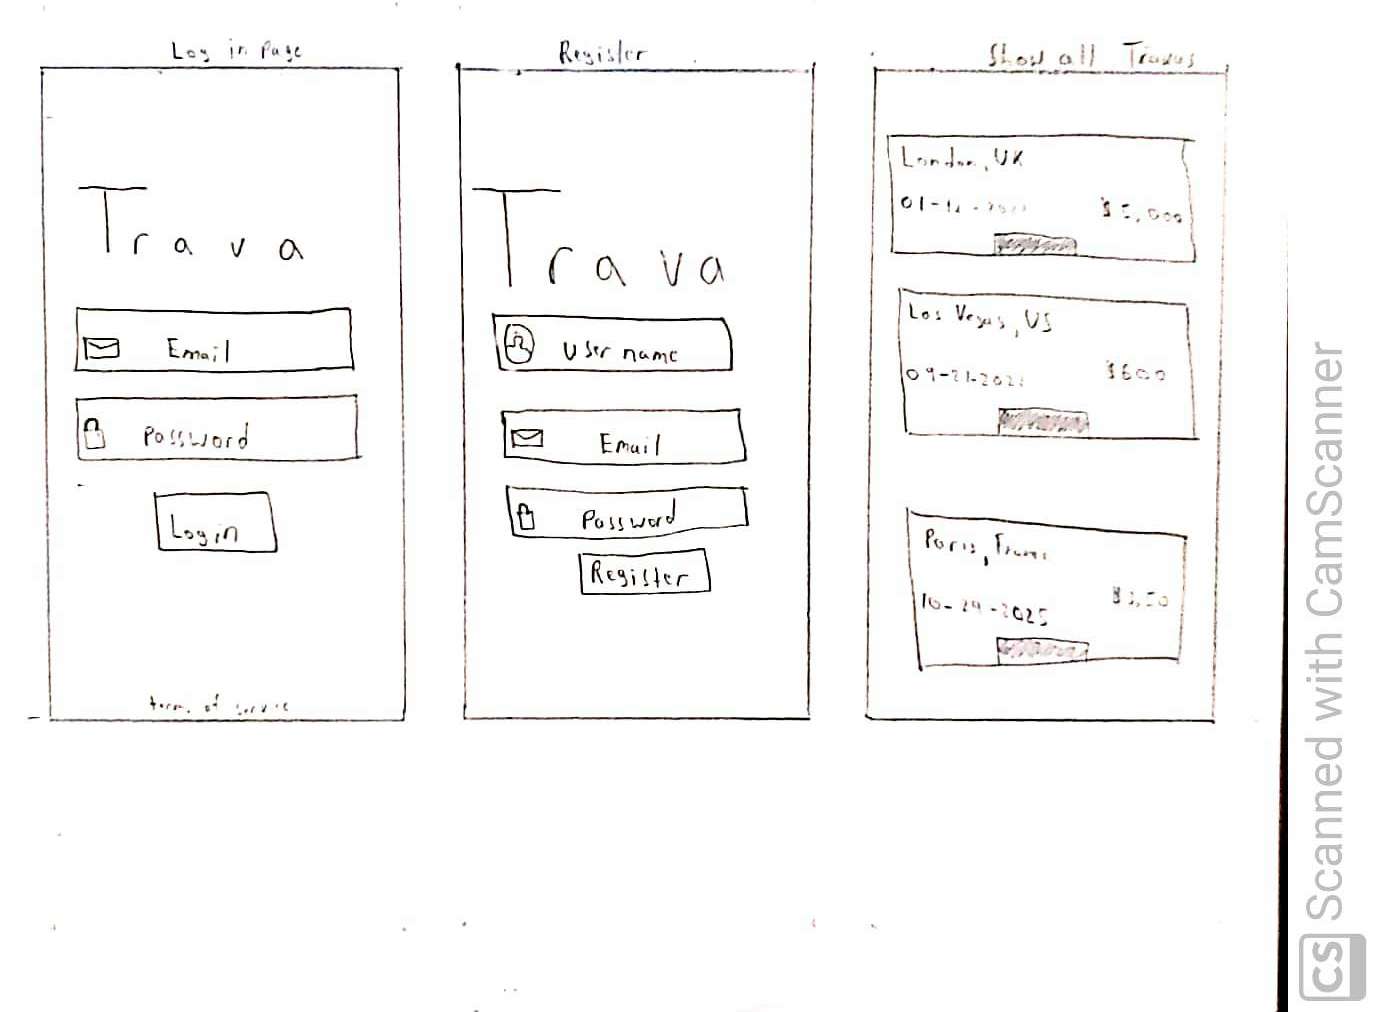 Log in Page
Trava
Email
Password
Login
term. of service
Register
Trava
User name
Email
Password
Register
Show all Travas
London, UK
$5,000
Los Vegas, US
09-21-2021
$600
Paris,
10-29-2025
CS Scanned with CamScanner